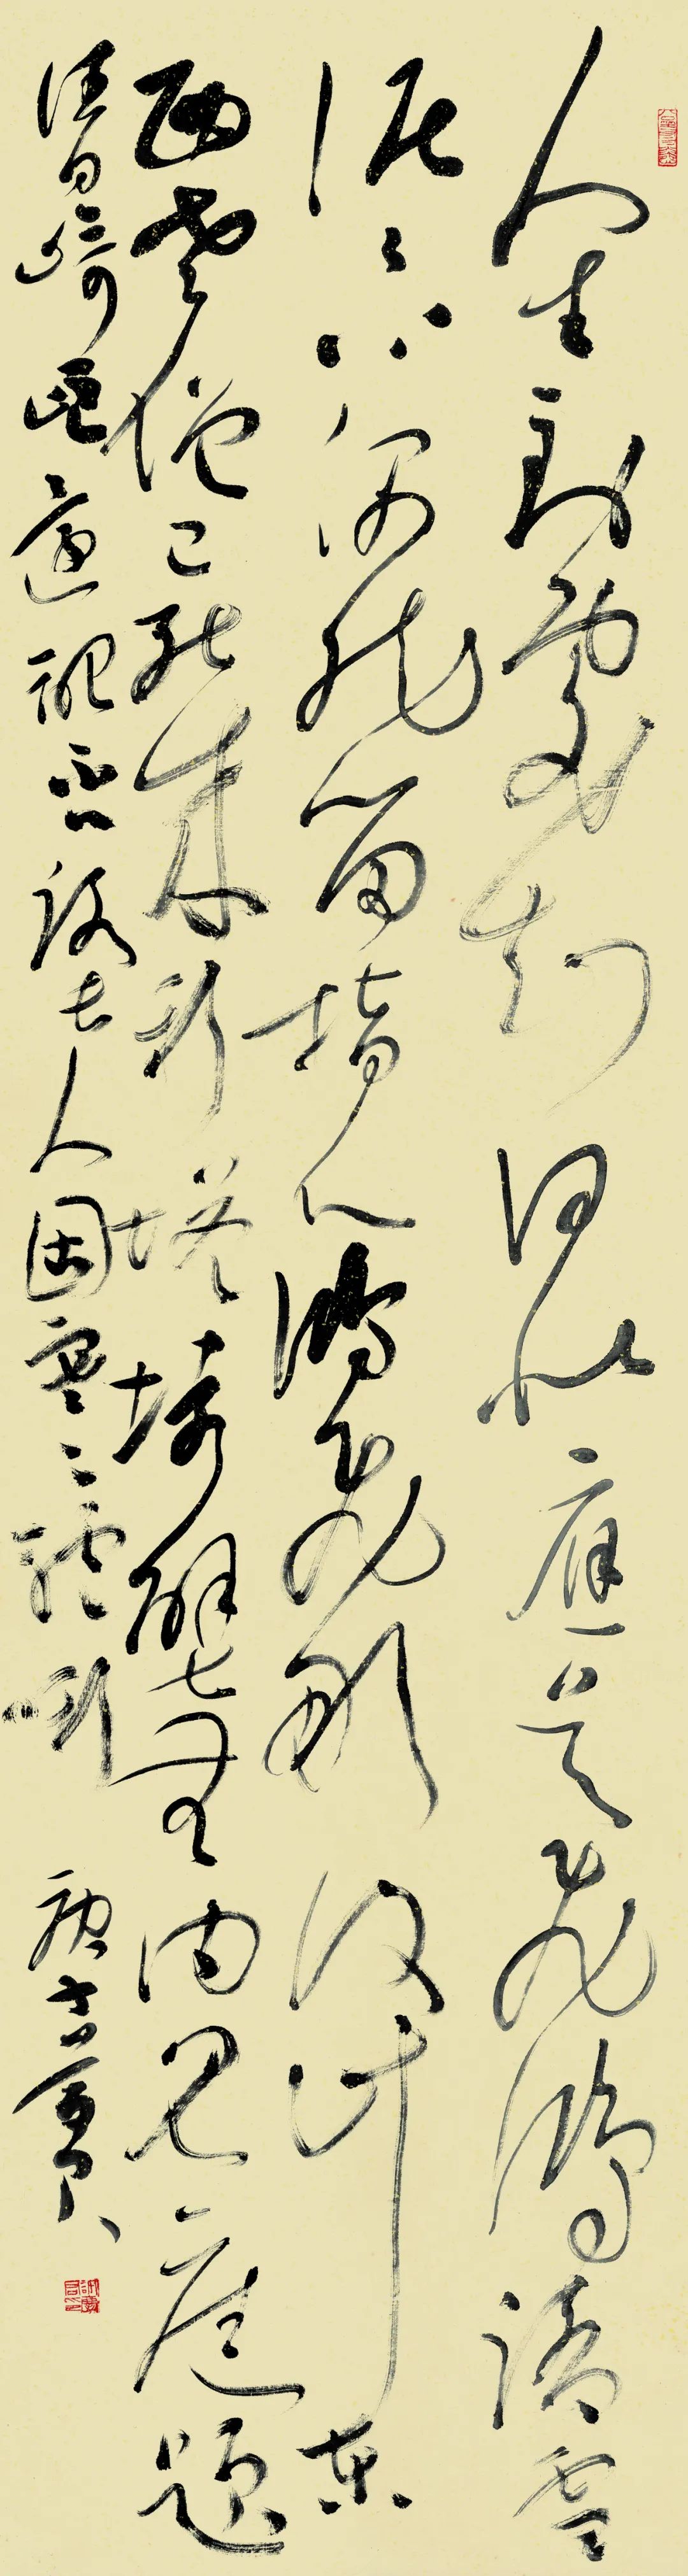 人生到處知何似應是飛鴻踏雪
泥々上偶然留指爪鴻飛那復計東
西老僧已死成新塔壞壁無由見舊題
往日崎嶇還記否路長人困蹇驢嘶